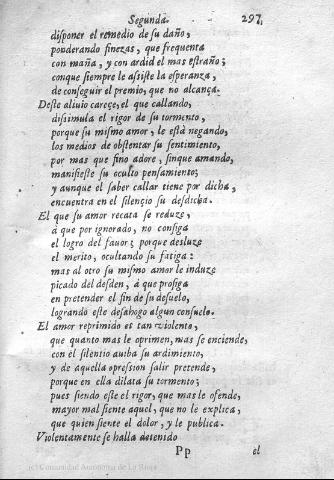 Segunda. 297.
disponer el remedio de su daño,
ponderando finezas, que frequenta
con maña, y con ardid el mas estraño;
conque siempre le assiste la esperança,
de conseguir el premio, que no alcança.
Deste aliuio carece, el que callando,
dissimula el rigor de su tormento,
porque su mismo amor, le està negando,
los medios de obstentar su sentimiento,
por mas que fino adore, sinque amando,
manifieste su oculto pensamiento;
y aunque el saber callar tiene por dicha,
encuentra en el silençio su desdicha.
El que su amor recata se reduze,
à que por ignorado, no consiga
el logro del fauor; porque desluze
el merito, ocultando su fatiga:
mas al otro su mismo amor le induze
picado del desden, à que prosiga
en pretender el fin de su desuelo,
logrando este desahogo algun consuelo.
El amor reprimido es tan violento,
que quanto mas le oprimen, mas se enciende,
con el silentio auiba su ardimiento,
y de aquella opression salir pretende,
porque en ella dilata su tormento;
pues siendo este el rigor, que mas le ofende,
mayor mal siente aquel, que no le explica,
que quien siente el dolor, y le publica.
Violentamente se halla detenido
Pp el
(c) Comunidad Autónoma de La Rioja